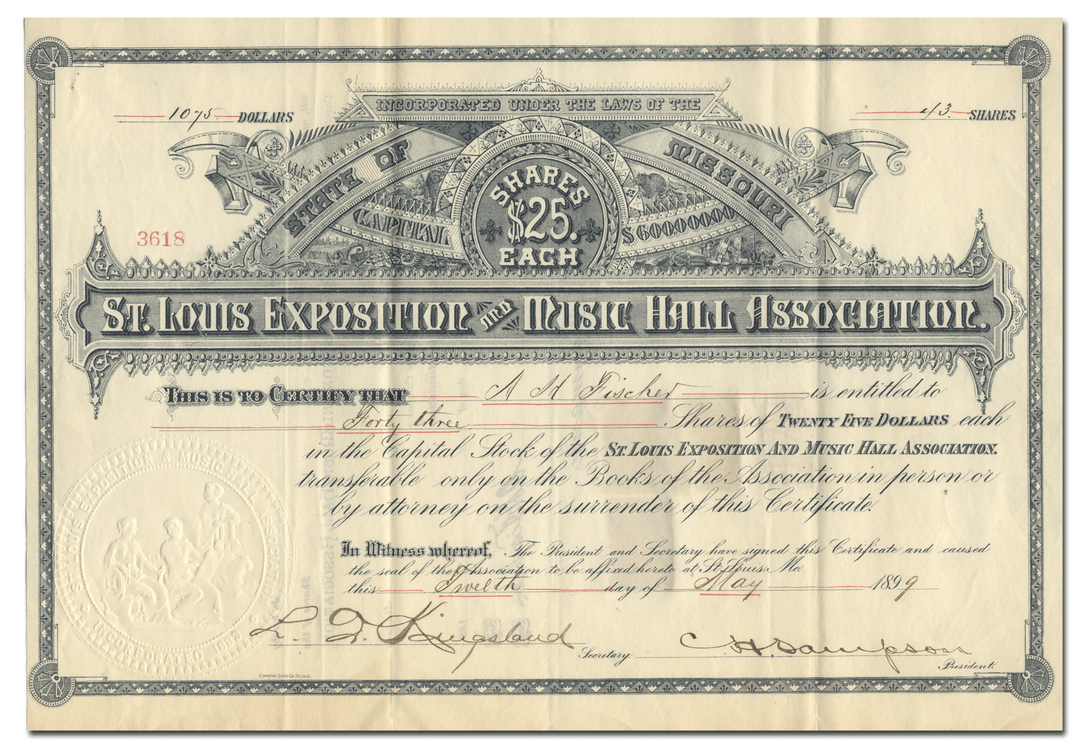 INCORPORATED UNDER THE LAWS OF THE
1075 DOLLARS
43 SHARES
STATE OF MISSOURI
CAPITAL $60000000
SHARES $25. EACH
3618
ST. LOUIS EXPOSITION AND MUSIC HALL ASSOCIATION.
THIS IS TO CERTIFY THAT A H Fischer is entitled to
Forty three Shares of TWENTY FIVE DOLLARS each
in the Capital Stock of the ST. LOUIS EXPOSITION AND MUSIC HALL ASSOCIATION.
transferable only on the Books of the Association in person or
by attorney on the surrender of this Certificate.
In Witness whereof, The President and Secretary have signed this Certificate and caused
the seal of the Association to be affixed hereto at St. Louis. Mo.
this Twelth day of May 1899
L. D. Kingsland Secretary. C H Sampson President.
ST. LOUIS EXPOSITION MUSIC HALL ASSOCIATION
INCORPORATED 1882